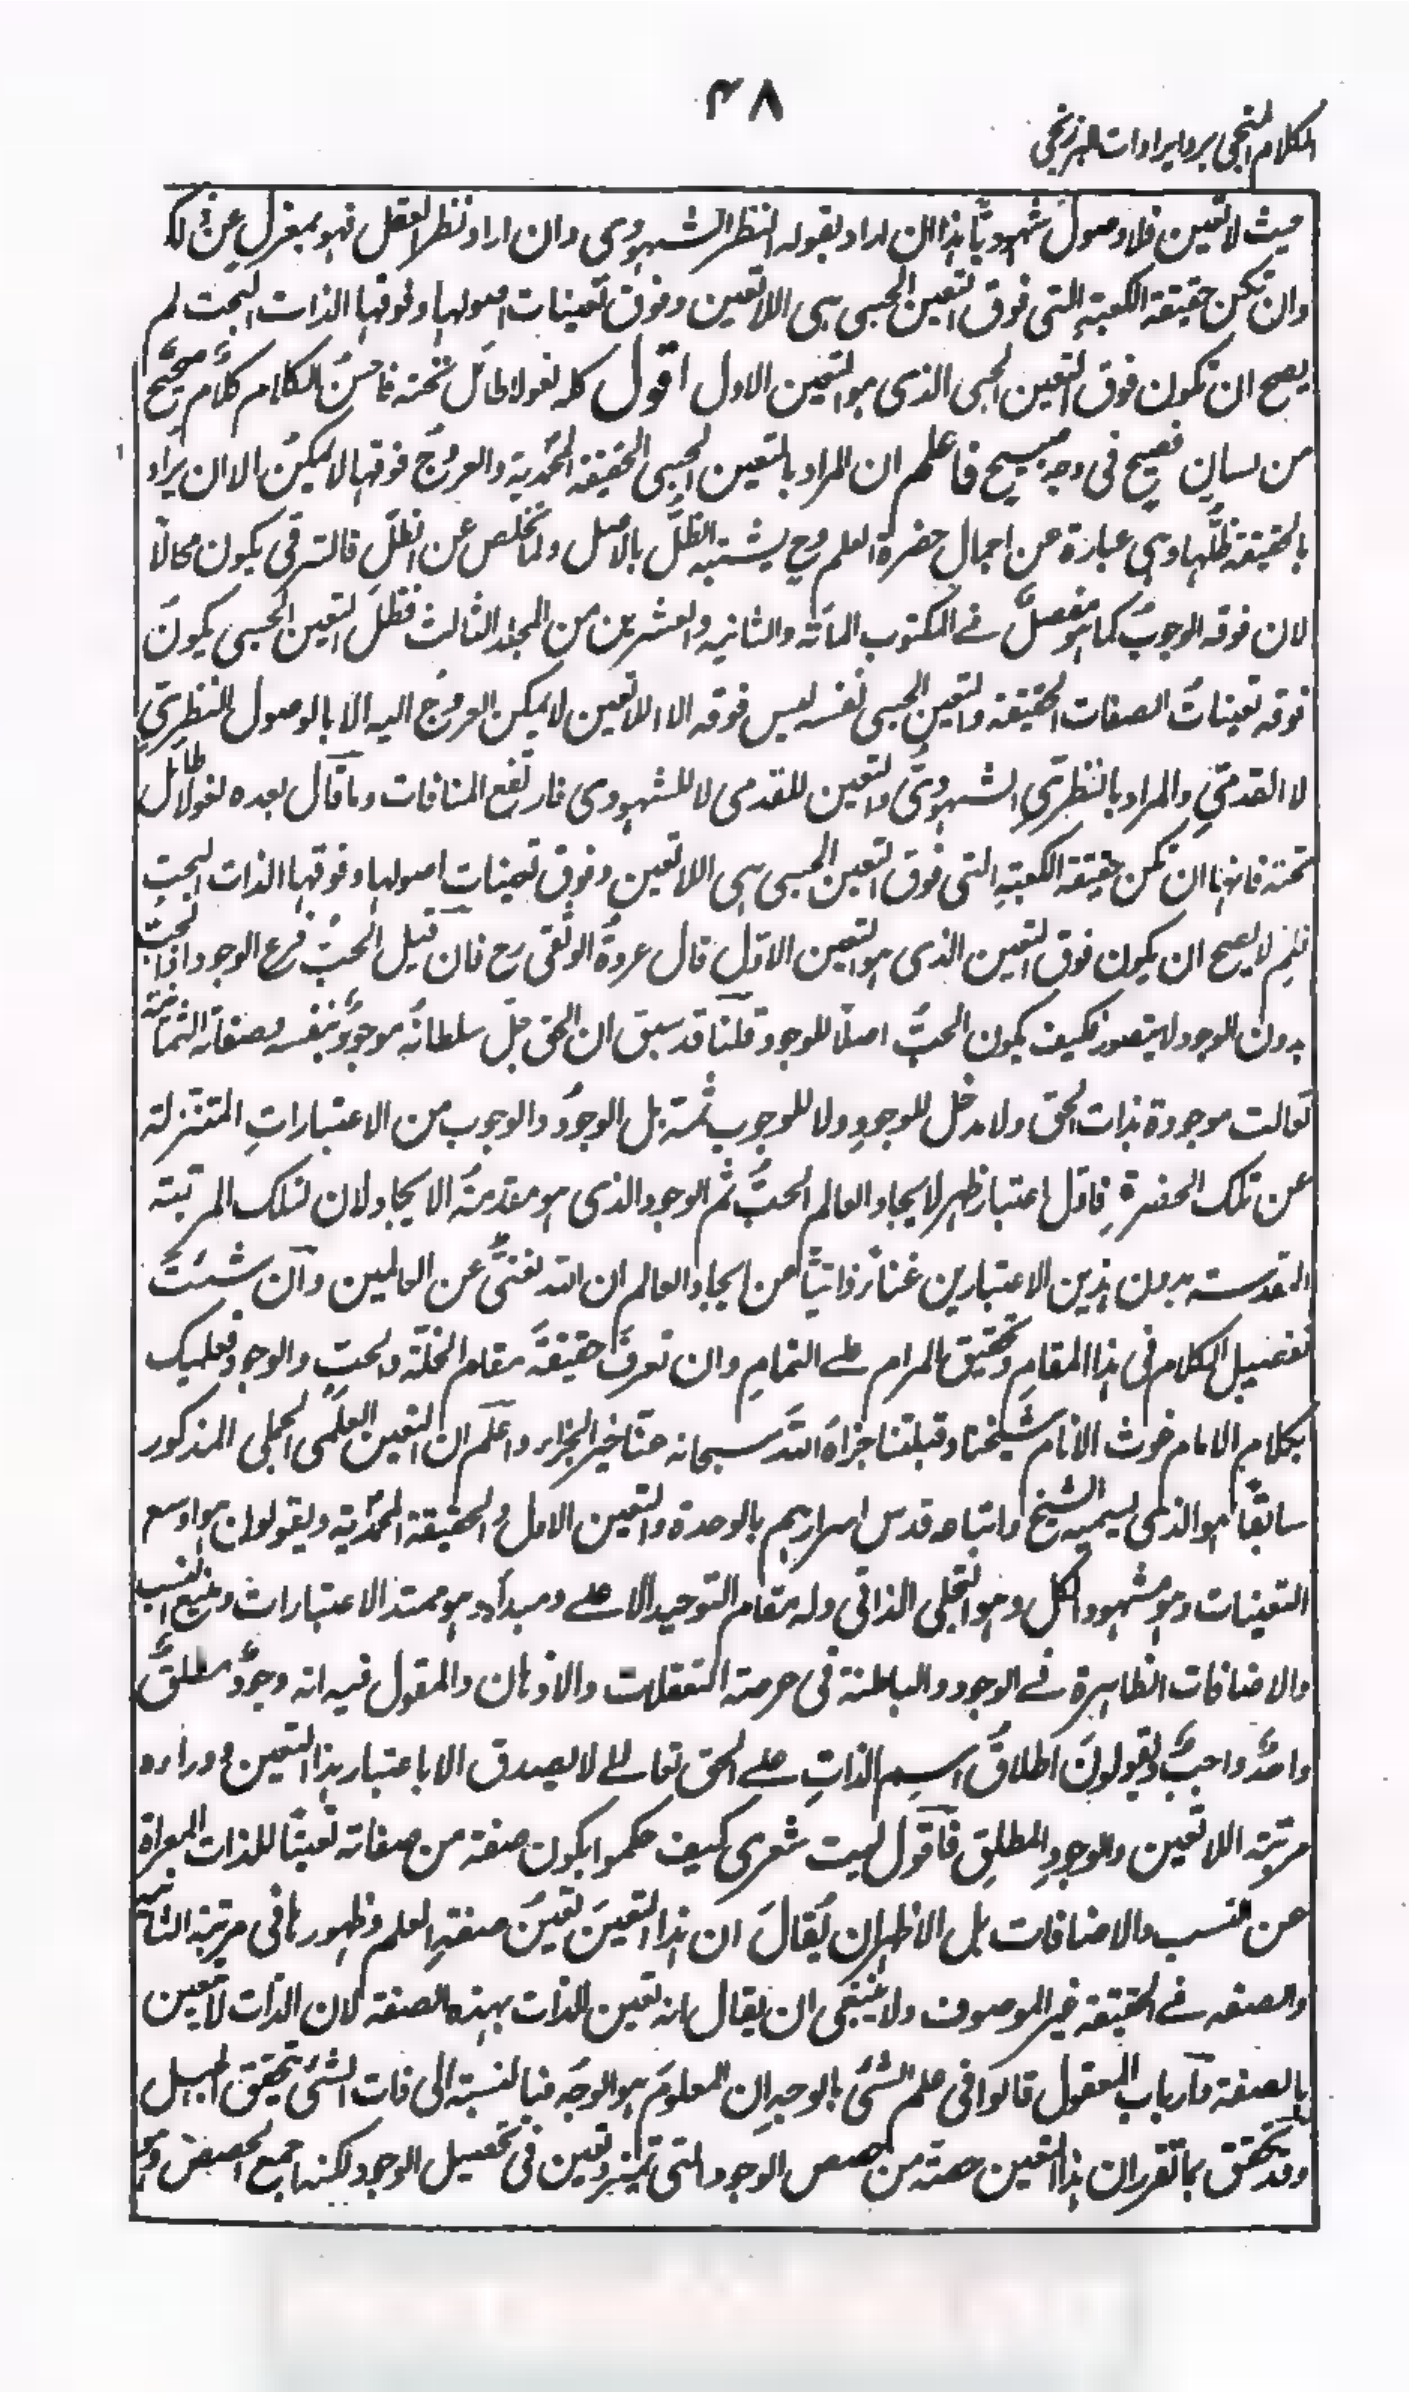 ٤٨
الكلام المنجي برد ايرادات البرزنجي
حيث لا تعين فلا وصولَ شهوديًّا هذا ان اراد بقوله النظر الشهودي وان اراد نظر العقل فهو بمعزل عن ذلك
وان تكن حقيقة الكعبة التي فوق التعين الحبي هي اللاتعين وفوق تعينات اصولها وفوقها الذات البحت لم
يصح ان تكون فوق التعين الحبي الذي هو التعين الاول اقول كله لغو لا طائل تحته فاحسنُ الكلام كلامٌ صحيحٌ
من لسانٍ فصيح في وجه صبيح فاعلم ان المراد بالتعين الحبي الحقيقة المحمدية والعروجُ فوقها لا يمكن الا ان يراد
بالحقيقة ظلُّها وهي عبارة عن اجمال حضرة العلم وح يشتبه الظلّ بالاصل ولمّا تخلص عن الظلّ فالترقي يكون محالًا
لان فوقه الوجوبُ كما هو مفصلٌ في المكتوب المأته والثانيه والعشرين من المجلد الثالث فظلّ التعين الحبي يكونُ
فوقه تعينات الصفات الحقيقة والتعين الحبي نفسه ليس فوقه الا اللاتعين لا يمكن العروجُ اليه الا بالوصول النظريّ
لا القدميِّ والمراد بالنظريّ الشهوديُّ والتعين للقدمي لا للشهودي فارتفع المنافات وما قال بعده لغو لا طائل
تحته فانها ان تكن حقيقة الكعبةِ التي فوق التعين الحبي هي اللاتعين وفوق تعينات اصولها وفوقها الذات البحت
فلِمَ لا يصح ان يكون فوق التعين الذي هو التعين الاول قال عروة الوثقى رح فان قيل الحبّ فرع الوجود اذ الحبّ
بدون الوجود لا يتصور فكيف يكون الحبُّ اصلًا للوجود قلنا قد سبق ان الحق جلّ سلطانه موجودٌ بنفسه وصفاته الثمانية
تعالت موجودة بذات الحق ولا مدخل للوجودِ ولا للوجوب ثمة بل الوجودُ والوجوب من الاعتباراتِ المتنزلة
عن تلك الحضرة فاوّل اعتبار ظهر لايجاد العالم الحبُّ ثم الوجود الذي هو مقدمةُ الايجاد لان لتلك المرتبة
المقدسة بدون هذين الاعتبارين غناءً ذاتيًّا عن ايجاد العالم ان الله لغنيٌّ عن العالمين وان شئتَ
تفصيل الكلام في هذا المقامِ وتحقيق المرام على التمامِ وان تعرفَ حقيقةَ مقام الخلّة والحبِّ والوجود فعليك
بكلام الامام غوث الانام شيخنا وقبلتنا جزاه اللهُ سبحانه عنّا خير الجزاء واعلم ان التعين العلمي الجملي المذكور
سابقًا هو الذي يسميه الشيخ واتباعه قدس اسرارهم بالوحدة والتعين الاول والحقيقة المحمديّة ويقولون هو اوسع
التعينات وهو مشهود الكل وهو التجلي الذاتي وله مقام التوحيد الاعلى ومبدأه هو ممتد الاعتبارات ومنبع النسب
والاضافات الظاهرة في الوجود والباطنة في عرصة التعقلات والاذهان والمقول فيه انه وجودٌ مطلقٌ
واحدٌ واجبٌ ويقولون اطلاقُ اسم الذاتِ على الحق تعالى لا يصدق الا باعتبار هذا التعين ووراءه
مرتبة اللاتعين والوجودِ المطلقِ فاقول ليت شعري كيف حكموا بكون صفة من صفاته تعينًا للذات المعراة
عن النسب والاضافات بل الاظهر ان يُقالَ ان هذا التعينَ تعينُ صفةِ العلم وظهورها في مرتبة الثانية
والصفه في الحقيقة غير الموصوف ولا ينبغي ان يقال انه تعين للذات بهذه الصفة لان الذات لا تتعين
بالصفة وارباب المعقول قالوا في علم الشئ بالوجهِ ان المعلومَ هو الوجه فبالنسبة الى ذات الشئ تحقق الجهل
وقد تحقق بما تقرر ان هذا التعين حصة من حصص الوجود التي تميز وتعين في تحصيل الوجود لكنه اجمع الحصص